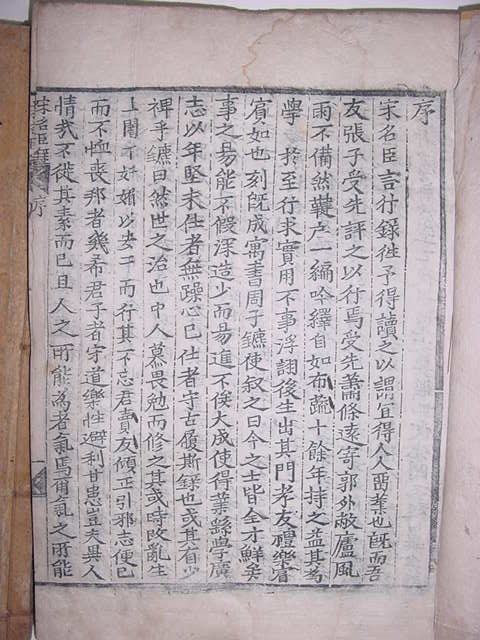 序
宋名臣言行錄徃予得讀之以謂宜得人人啇業也旣而吾
友張子受先評之以行焉受先蕭條遠寄郭外敝廬風
雨不備然鞾戶一編吟繹自如布蔬十餘年持之益其爲
學於至行求實用不事浮詡後生出其門孝友禮樂睿
賓如也刻旣成寓書周子鑣使叙之曰今之士皆全才鮮矣
事之易能不假深造少而易進不俟大成使得葉縣學廣
志以年堅未仕者無躁心已仕者守古履斯錄也或其有少
裨乎鑣曰然世之治也中人慕畏勉而修之其或時改亂生
上闇下奸婚以安干而行其不忘君責友傾正引邪志便已
而不恤喪邦者幾希君子者守道樂性避利甘患豈夫異人
情哉不徙其素而已且人之所能為者氣焉爾氣之所能
宋名臣言行錄 序